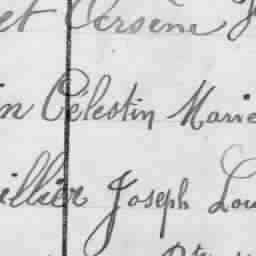 et Arsène J
in Célestin Marie
illier Joseph Lou